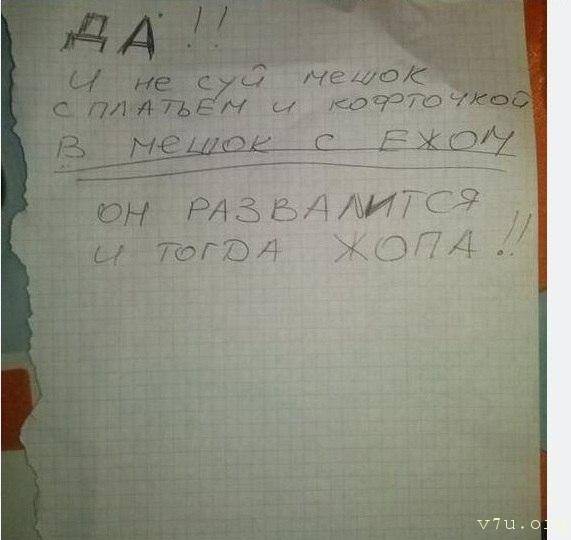 ДА!!
И не суй мешок
с платьем и кофточкой
В мешок с ЕЖОМ
ОН РАЗВАЛИТСЯ
И ТОГДА ЖОПА!!
v7u.o